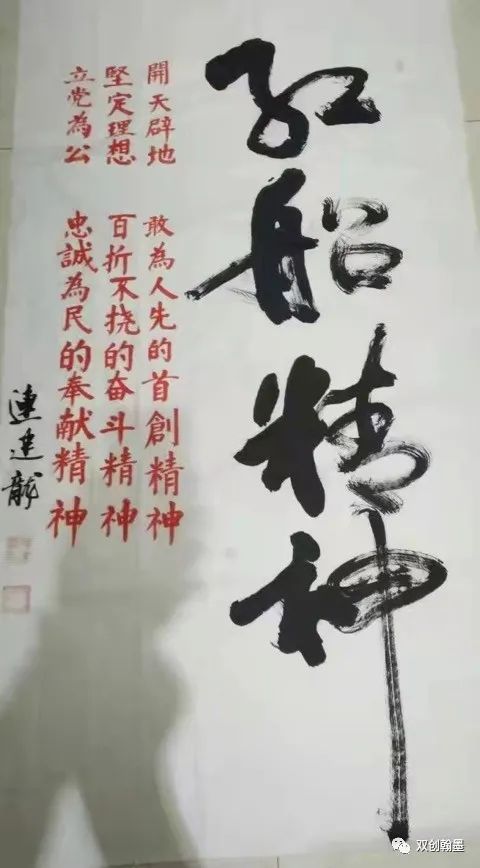 红船精神
開天辟地 敢為人先的首創精神
堅定理想 百折不挠的奋斗精神
立党為公 忠誠為民的奉献精神
連建龍
双创翰墨